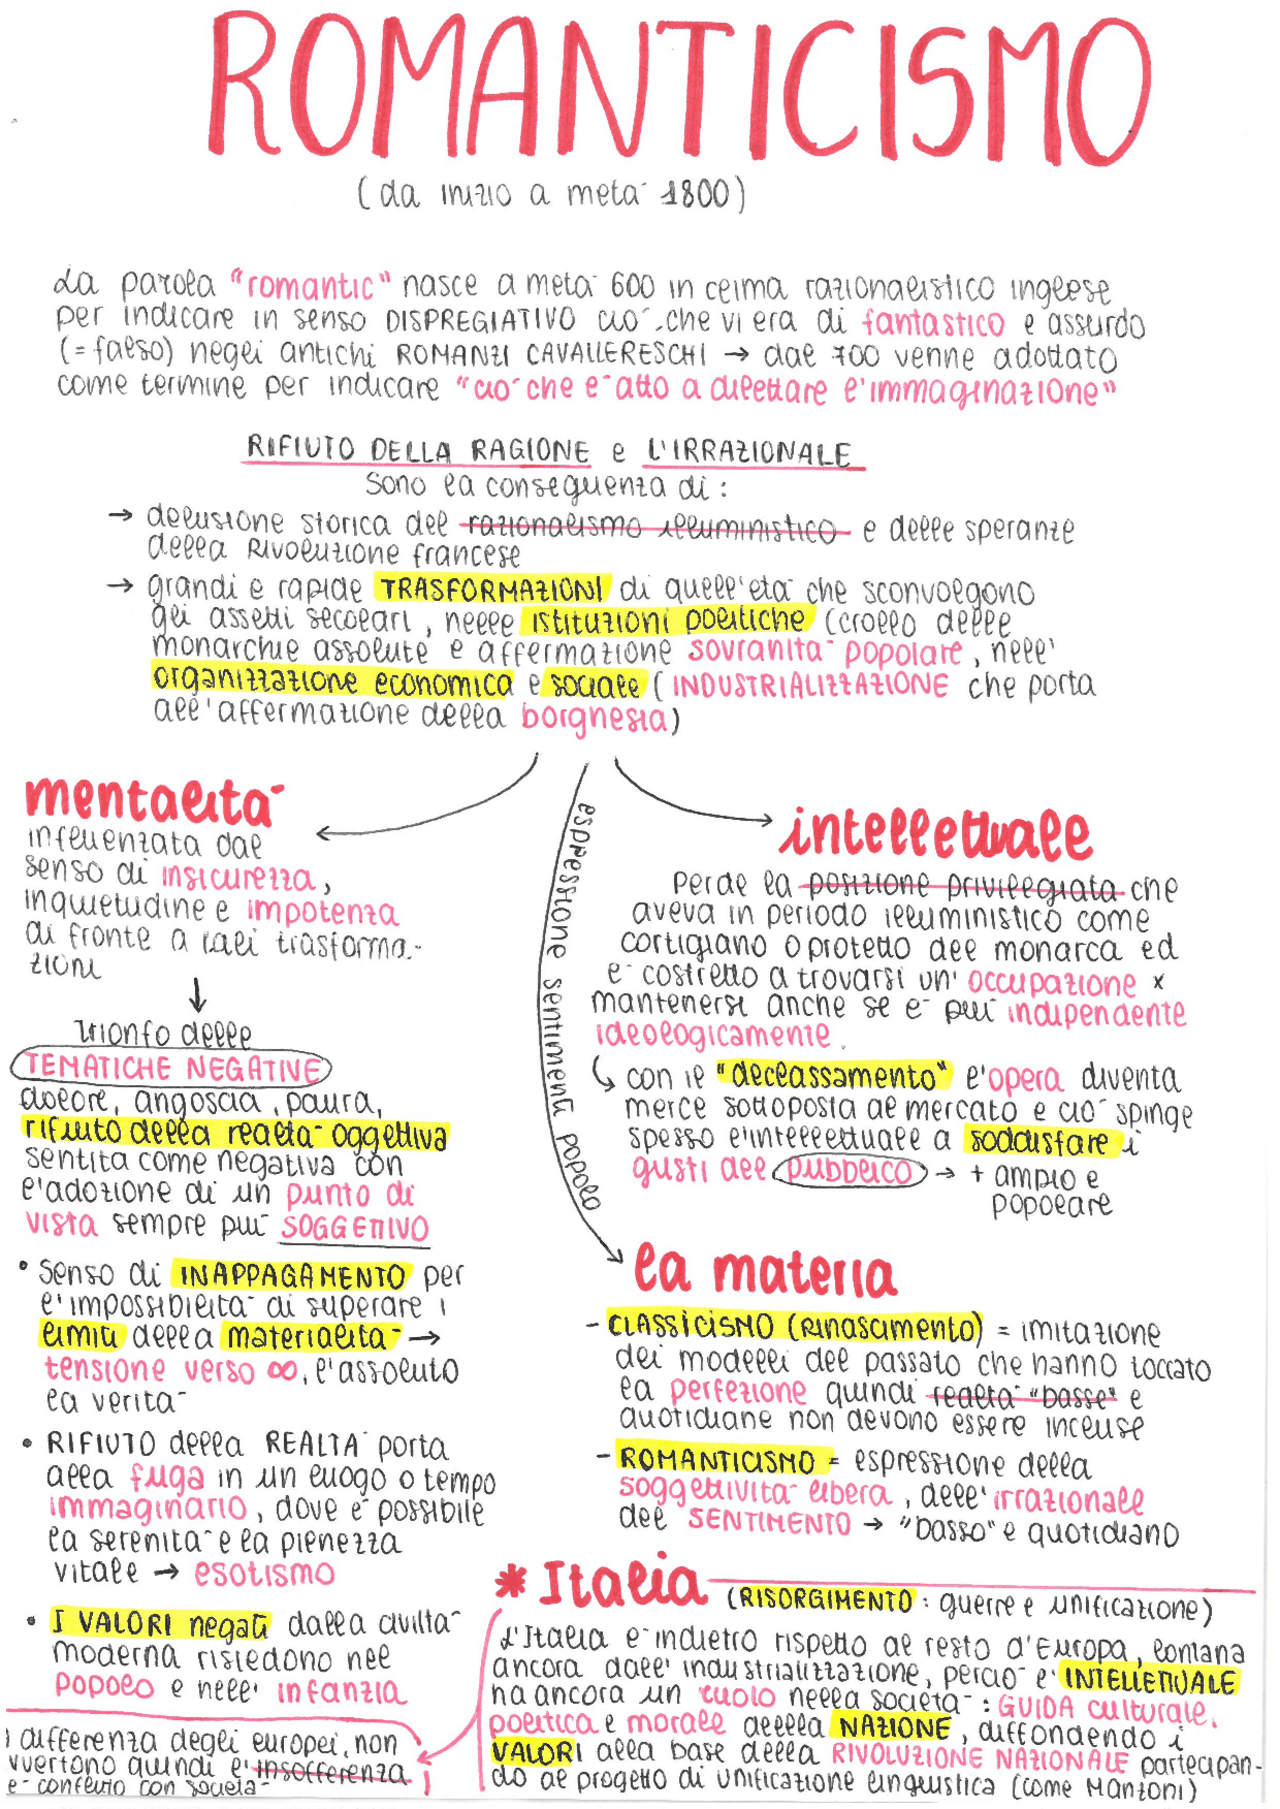 ROMANTICISMO
(da inizio a metà 1800)
La parola "romantic" nasce a metà 600 in clima razionalistico inglese
per indicare in senso DISPREGIATIVO ciò che vi era di fantastico e assurdo
(= falso) negli antichi ROMANZI CAVALLERESCHI → dal 700 venne adottato
come termine per indicare "ciò che è atto a dilettare l'immaginazione"
RIFIUTO DELLA RAGIONE e L'IRRAZIONALE
sono la conseguenza di:
→ delusione storica del razionalismo illuministico e delle speranze
della Rivoluzione francese
→ grandi e rapide TRASFORMAZIONI di quell'età che sconvolgono
gli assetti secolari, nelle istituzioni politiche (crollo delle
monarchie assolute e affermazione sovranità popolare, nell'
organizzazione economica e sociale (INDUSTRIALIZZAZIONE che porta
all'affermazione della borghesia)
mentalità
influenzata dal
senso di insicurezza,
inquietudine e impotenza
di fronte a tali trasforma-
zioni
↓
trionfo delle
TEMATICHE NEGATIVE
dolore, angoscia, paura,
rifiuto della realtà oggettiva
sentita come negativa con
l'adozione di un punto di
vista sempre più SOGGETTIVO
• senso di INAPPAGAMENTO per
l'impossibilità di superare i
limiti della materialità →
tensione verso ∞, l'assoluto
la verità
• RIFIUTO della REALTÀ porta
alla fuga in un luogo o tempo
immaginario, dove è possibile
la serenità e la pienezza
vitale → esotismo
• I VALORI negati dalla civiltà
moderna risiedono nel
popolo e nell' infanzia
espressione sentimenti popolo
intellettuale
Perde la posizione privilegiata che
aveva in periodo illuministico come
cortigiano o protetto del monarca ed
è costretto a trovarsi un' occupazione x
mantenersi anche se è più indipendente
ideologicamente.
↳ con il "declassamento" l'opera diventa
merce sottoposta al mercato e ciò spinge
spesso l'intellettuale a soddisfare i
gusti del pubblico → + ampio e
popolare
la materia
- CLASSICISMO (Rinascimento) = imitazione
dei modelli del passato che hanno toccato
la perfezione quindi realtà "basse" e
quotidiane non devono essere incluse
- ROMANTICISMO = espressione della
soggettività libera, dell'irrazionale
del SENTIMENTO → "basso" e quotidiano
* Italia (RISORGIMENTO: guerre e unificazione)
L'Italia è indietro rispetto al resto d'Europa, lontana
ancora dall'industrializzazione, perciò l'INTELLETTUALE
ha ancora un ruolo nella società: GUIDA culturale,
politica e morale della NAZIONE, diffondendo i
VALORI alla base della RIVOLUZIONE NAZIONALE partecipan-
do al progetto di unificazione linguistica (come Manzoni)
differenza degli europei, non
vvertono quindi l'insofferenza
e conflitto con società